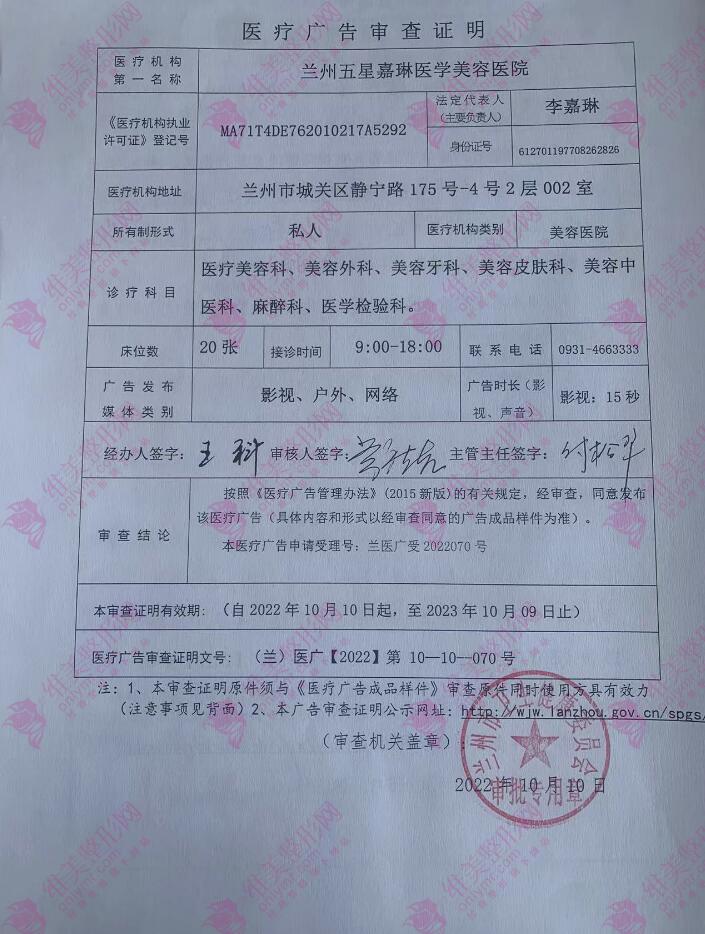 医疗广告审查证明
医疗机构
第一名称
兰州五星嘉琳医学美容医院
《医疗机构执业
许可证》登记号
MA71T4DE762010217A5292
法定代表人
(主要负责人)
李嘉琳
身份证号
612701197708262826
医疗机构地址
兰州市城关区静宁路175号-4号2层002室
所有制形式
私人
医疗机构类别
美容医院
诊疗科目
医疗美容科、美容外科、美容牙科、美容皮肤科、美容中
医科、麻醉科、医学检验科。
床位数
20 张
接诊时间
9:00-18:00
联系电话
0931-4663333
广告发布
媒体类别
影视、户外、网络
广告时长(影
视、声音)
影视：15秒
经办人签字：王科 审核人签字： 主管主任签字：付松华
审查结论
按照《医疗广告管理办法》(2015新版)的有关规定，经审查，同意发布
该医疗广告（具体内容和形式以经审查同意的广告成品样件为准）。
本医疗广告申请受理号：兰医广受2022070号
本审查证明有效期：（自2022年10月10日起，至2023年10月09日止）
医疗广告审查证明文号：（兰）医广【2022】第 10—10--070 号
注：1、本审查证明原件须与《医疗广告成品样件》审查原件同时使用方具有效力
（注意事项见背面）2、本广告审查证明公示网址：http://wjw.lanzhou.gov.cn/spgs/
（审查机关盖章）
2022年10月10日
兰州市卫生健康委员会
审批专用章
维美整形网
onlymr.com